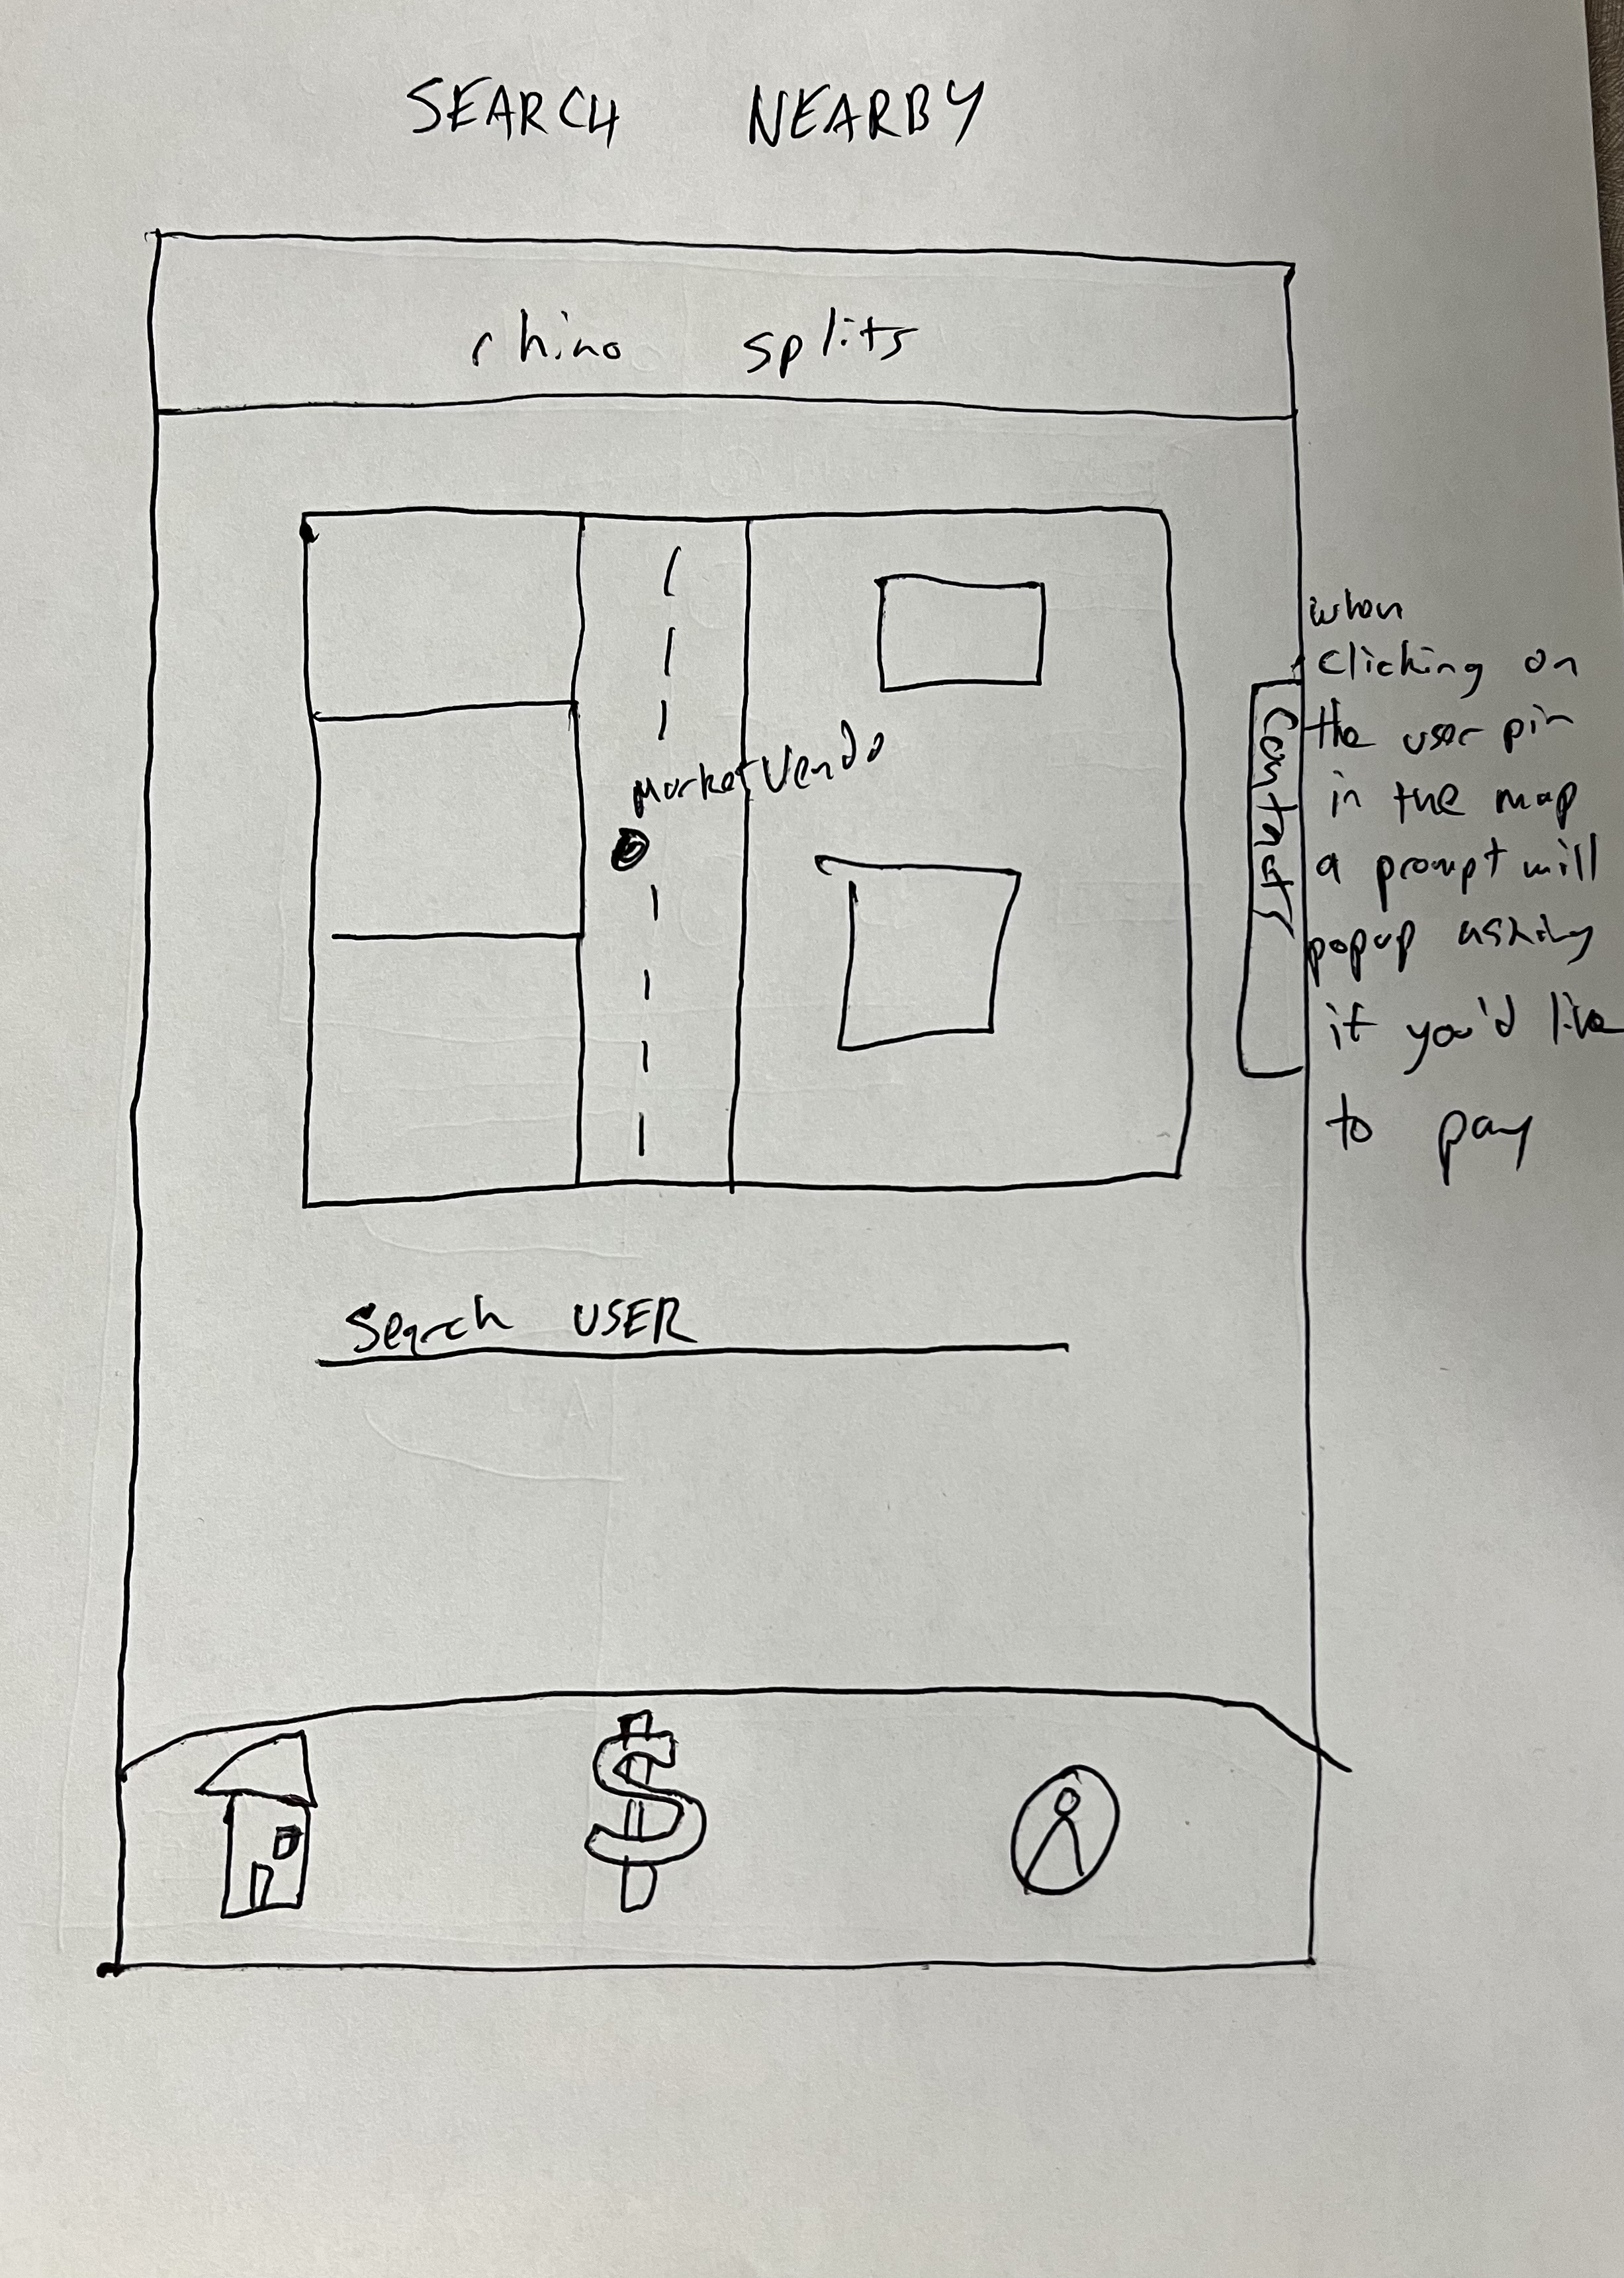 SEARCH NEARBY
rhino splits
MarketVendo
Contact
when
clicking on
the user pin
in the map
a prompt will
popup asking
if you'd like
to pay
Search USER
$